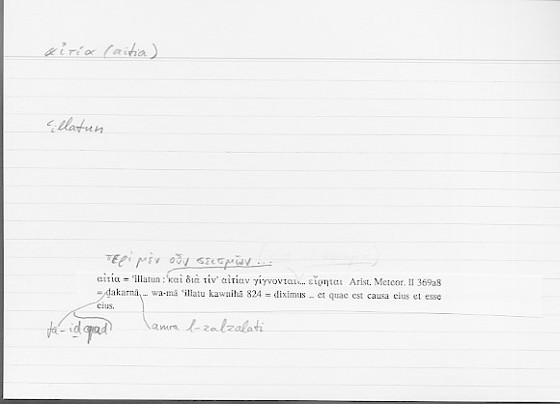 αἰτία (aitia)
ʿillatun
περὶ μὲν οὖν σεισμῶν ...
αἰτία = ʿillatun : καὶ διὰ τίν' αἰτίαν γίγνονται... εἴρηται Arist. Meteor. II 369a8
= ḏakarnā ... wa-mā ʿillatu kawnihā 824 = diximus .. et quae est causa eius et esse
eius.
fa-id qad amra l-zalzalati